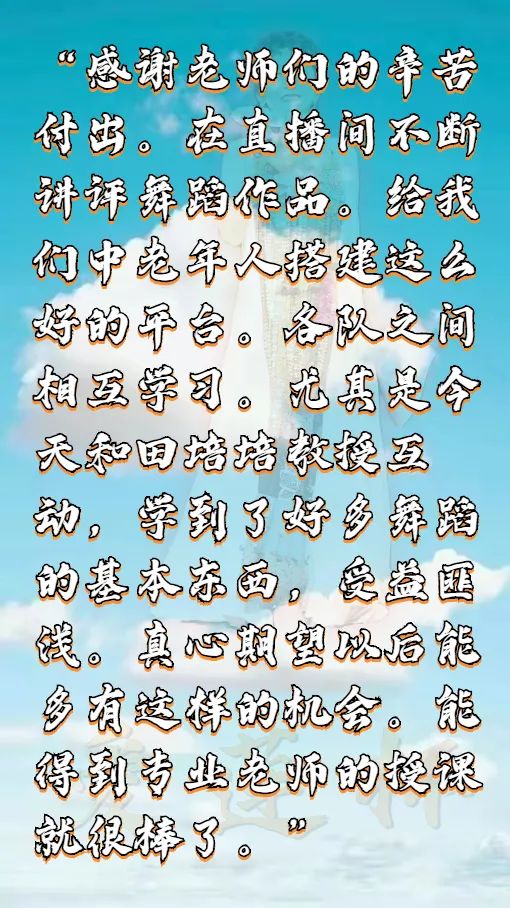 “感谢老师们的辛苦
付出。在直播间不断
讲评舞蹈作品。给我
们中老年人搭建这么
好的平台。各队之间
相互学习。尤其是今
天和田培培教授互
动，学到了好多舞蹈
的基本东西，受益匪
浅。真心期望以后能
多有这样的机会。能
得到专业老师的授课
就很棒了。”